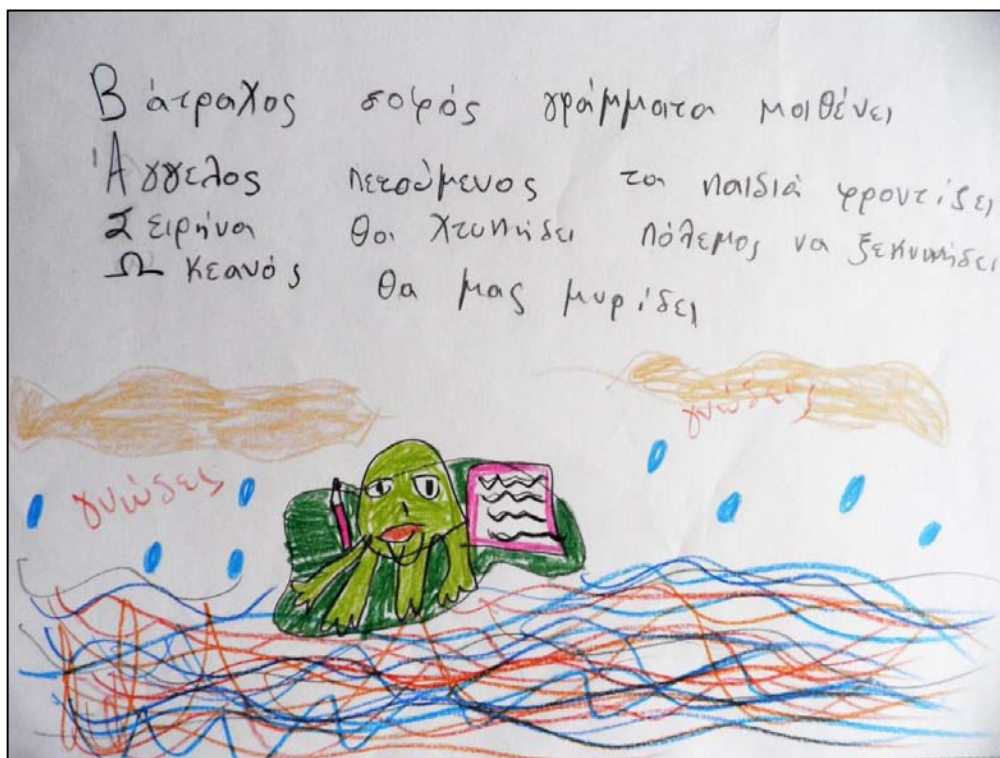 Βάτραχος σοφός γράμματα μαθένει
Άγγελος πετούμενος τα παιδιά φροντίζει
Σειρήνα θα χτυπήσει πόλεμος να ξεκινήσει
Ωκεανός θα μας μυρίσει
γνώσεις
γνώσεις